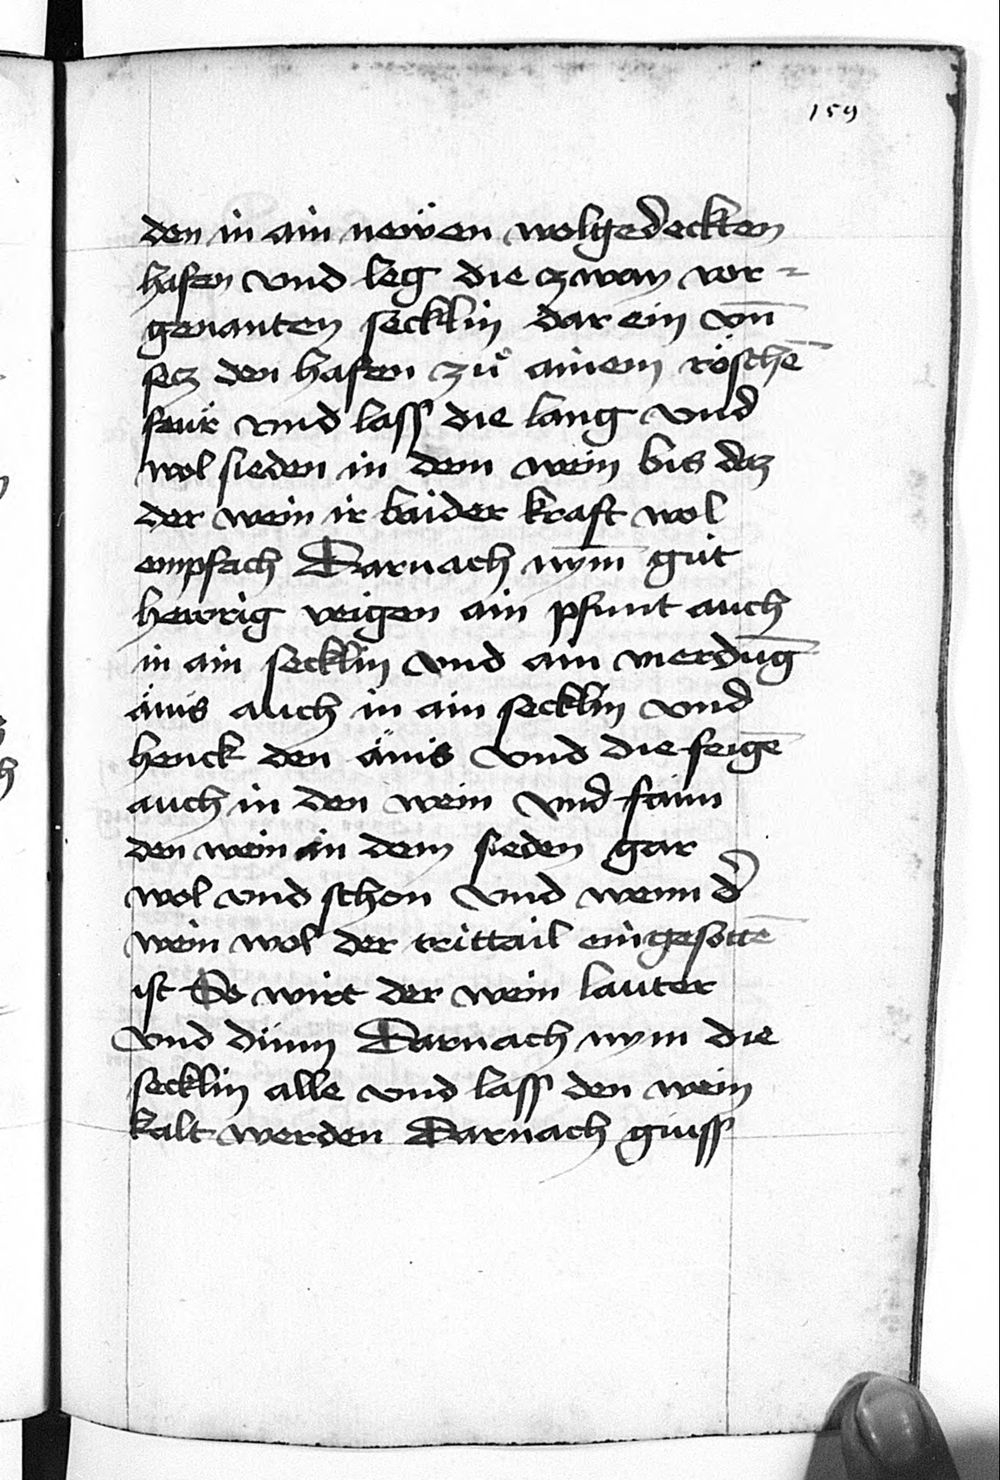 159
den in ain newen wolgedeckten
hafen vnd leg die zway vor=
genanten secklin dar ein vn̄
secz den hafen zuͦ ainem röschē
feur vnd lass die lang vnd
wol sieden in dem wein bis dez
der wein ir baider kraft wol
empfach Darnach nym̄ gut
hewrig veigen ain pfunt auch
in ain secklin vnd ain vierdūg
änis auch in ain secklin vnd
henck den änis vnd die feigē
auch in den wein vnd faim
den wein in dem sieden gar
wol vnd schon vnd wenn d̕
wein wol der trittail eingesottē
ist So wirt der wein lauter
vnd dünn Darnach nym die
secklin alle vnd lass den wein
kalt werden Darnach giuss